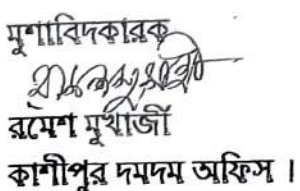 মুশাবিদকারক
রমেশ মুখার্জী
কাশীপুর দমদম অফিস ।